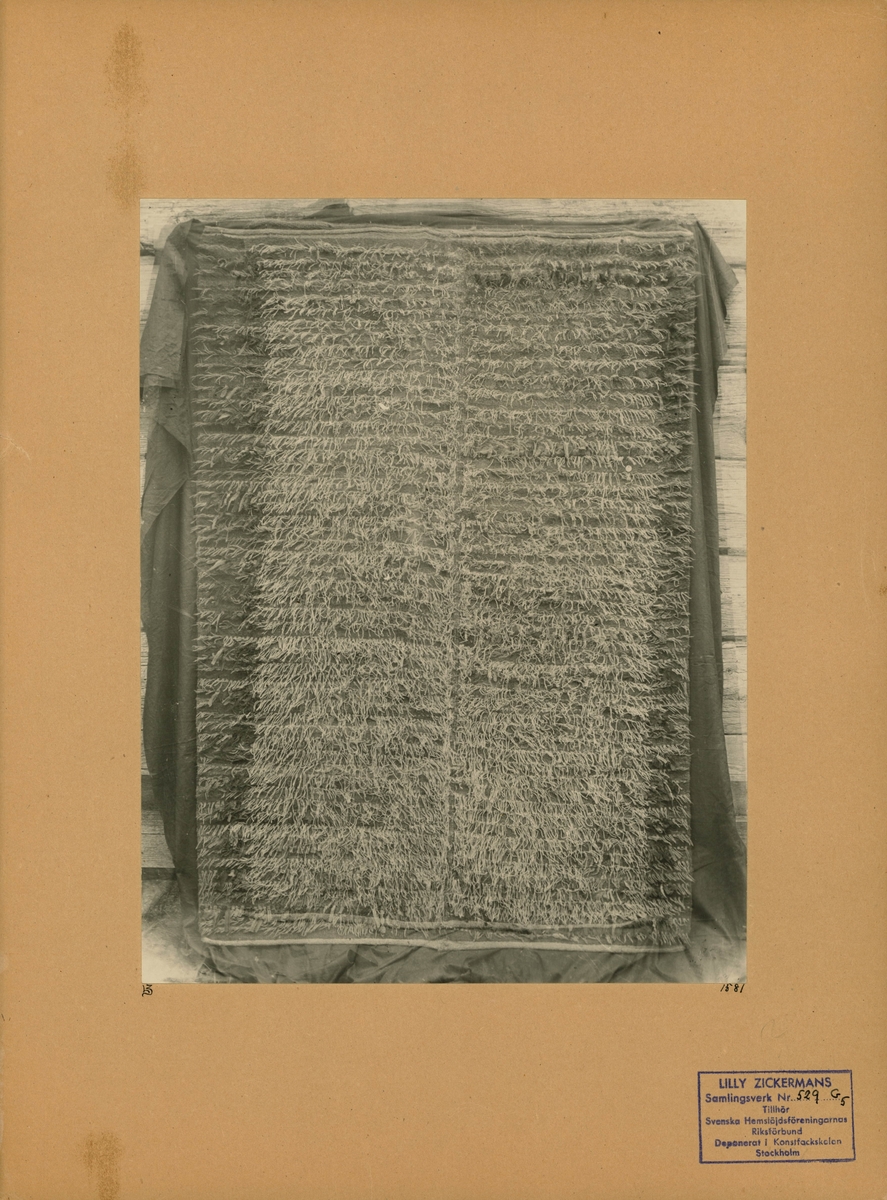 1581
LILLY ZICKERMANS
Samlingsverk Nr. 529 G5
Tillhör
Svenska Hemslöjdsföreningarnas
Riksförbund
Deponerat i Konstfackskolan
Stockholm